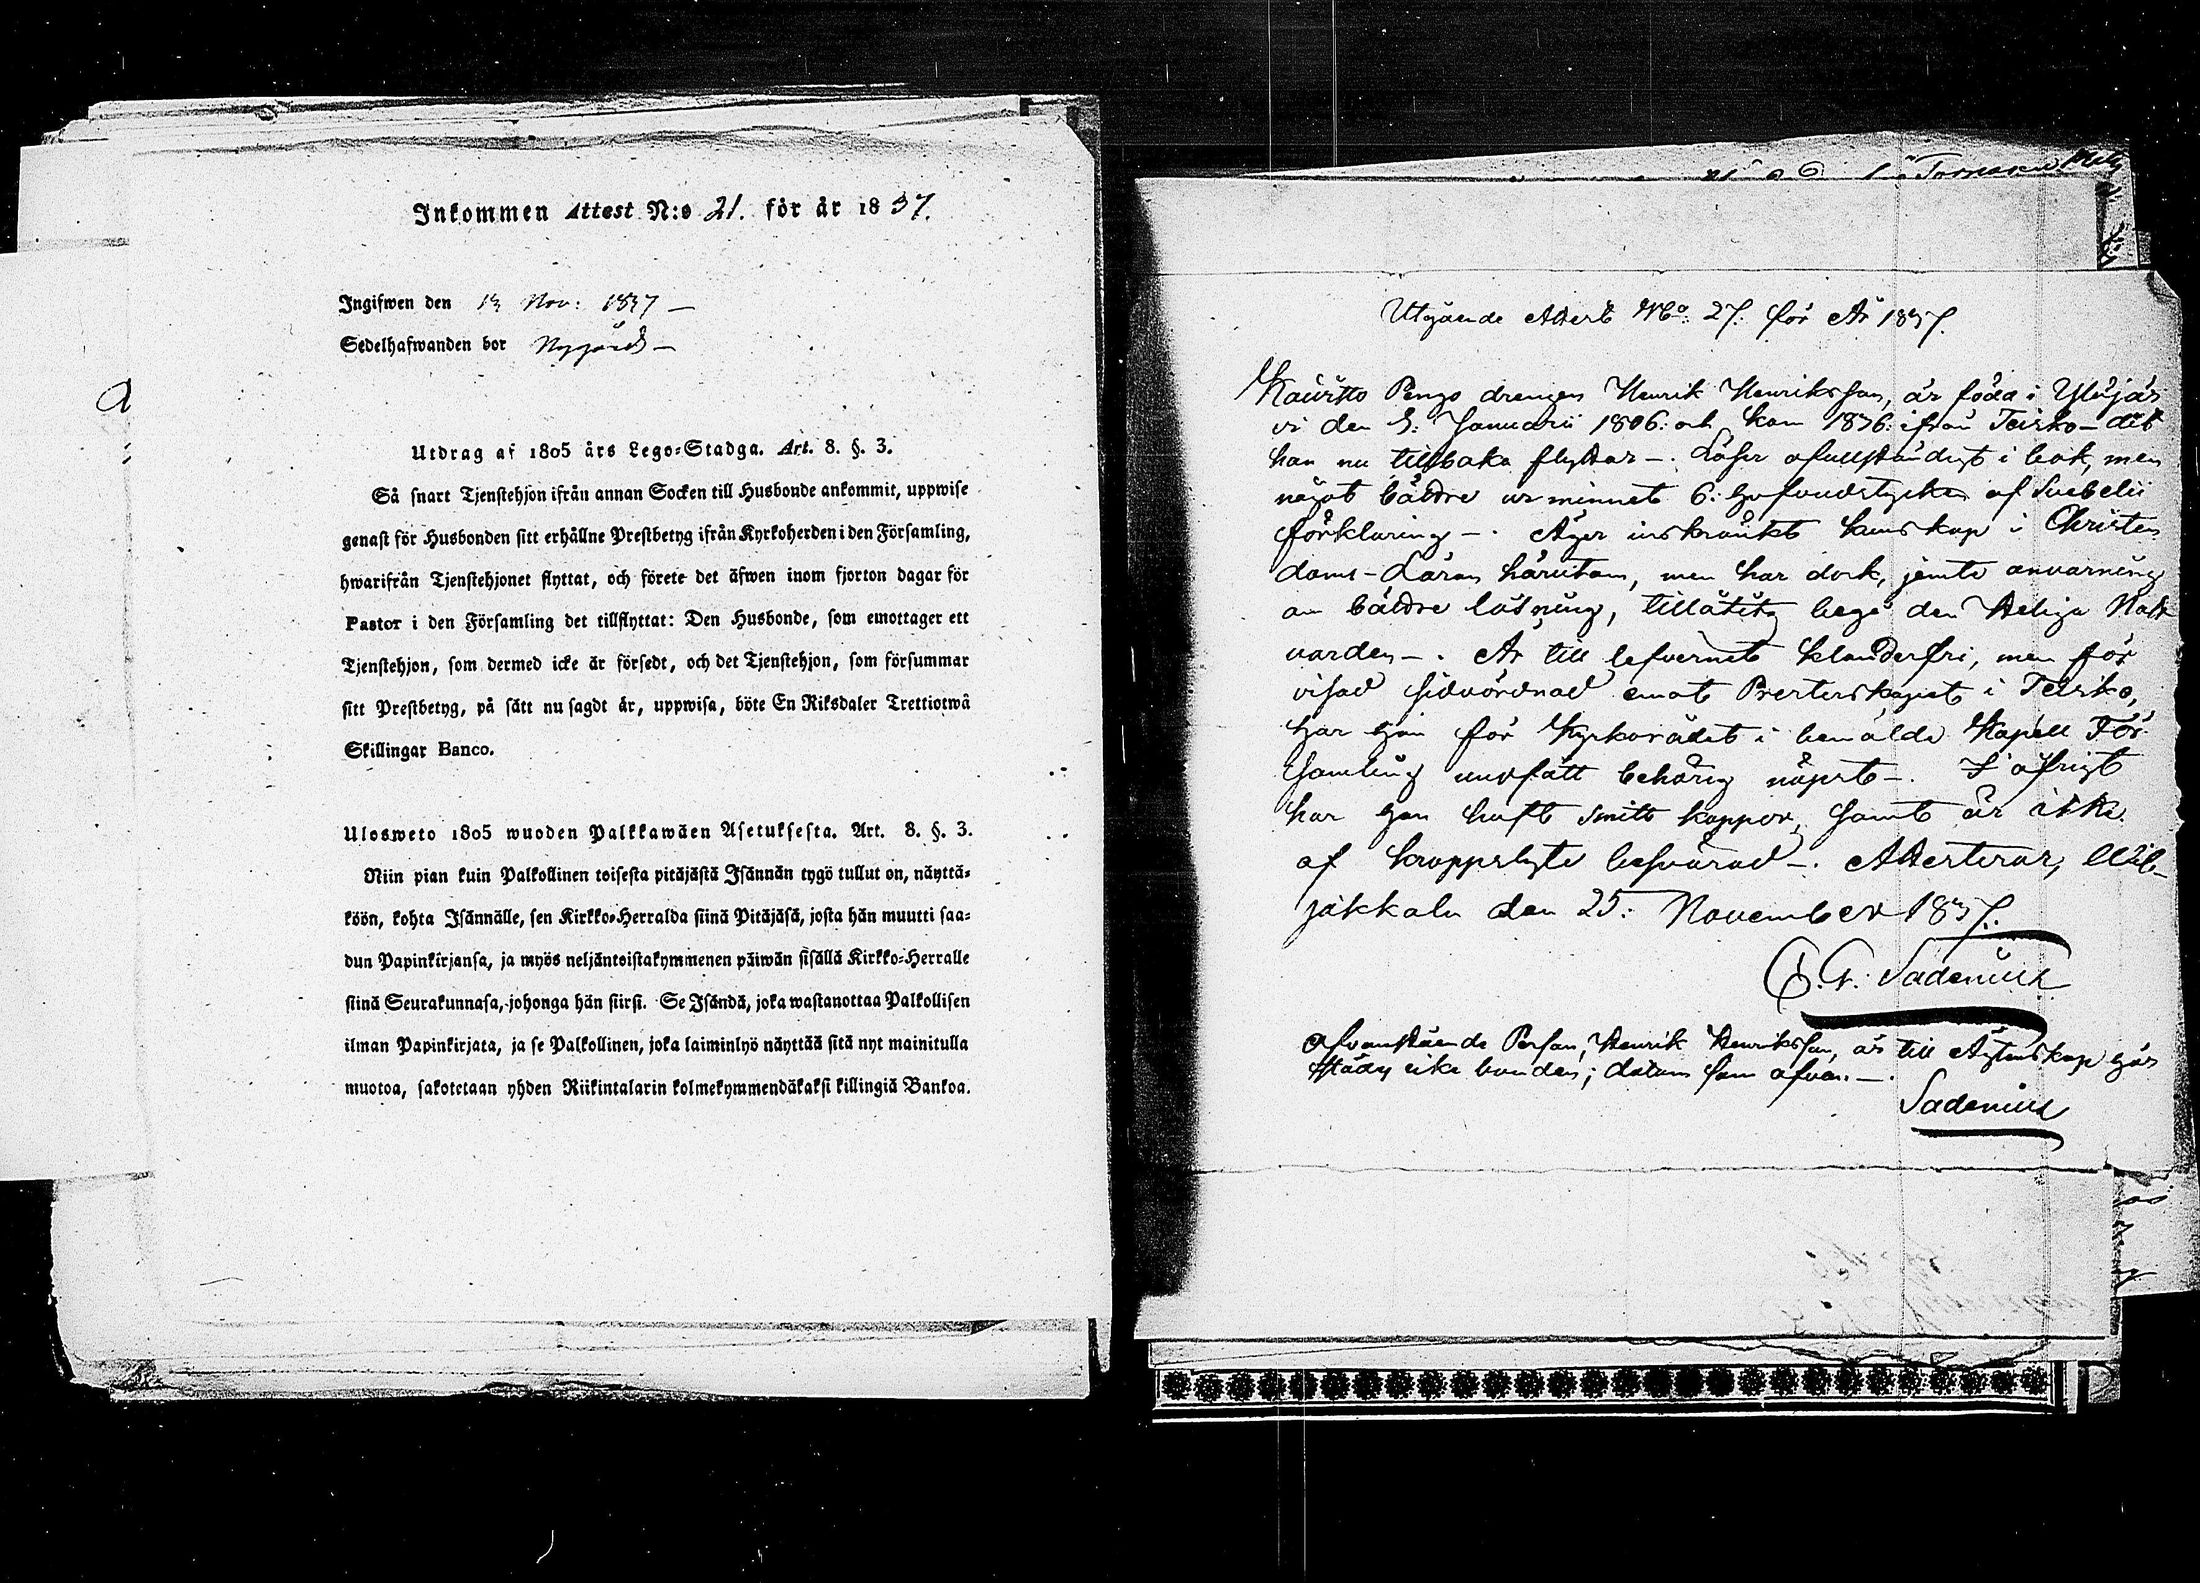 Inkommen Attest N:o 21. för år 1837.
Ingifwen den 13 Nov: 1837 —
Sedelhafwanden bor
Utdrag af 1805 års Lego-Stadga. Art. 8. §. 3.
Så snart Tjenstehjon ifrån annan Socken till Husbonde ankommit, uppwise
genast för Husbonden sitt erhållne Prestbetyg ifrån Kyrkoherden i den Församling,
hwarifrån Tjenstehjonet flyttat, och förete det äfwen inom fjorton dagar för
Pastor i den Församling det tillflyttat: Den Husbonde, som emottager ett
Tjenstehjon, som dermed icke är försedt, och det Tjenstehjon, som försummar
sitt Prestbetyg, på sätt nu sagdt är, uppwisa, böte En Riksdaler Trettiotwå
Skillingar Banco.
Ulosweto 1805 wuoden Palkkawäen Asetuksesta. Art. 8. §. 3.
Niin pian kuin Palkollinen toisesta pitäjästä Isännän tygö tullut on, näyttä-
köön, kohta Isännälle, sen Kirkko-Herralda siinä Pitäjäsä, josta hän muutti saa-
dun Papinkirjansa, ja myös neljäntoistakymmenen päiwän sisällä Kirkko-Herralle
siinä Seurakunnasa, johonga hän siirsi. Se Isändä, joka wastanottaa Palkollisen
ilman Papinkirjata, ja se Palkollinen, joka laiminlyö näyttää sitä nyt mainitulla
muotoa, sakotetaan yhden Riikintalarin kolmekymmendäkaksi killingiä Bankoa.
Utgående Attest No: 27. för År 1837.
drengen Henrik Henriksson, är född i Ylöjär
vi den 9: Januarii 1806: och kom 1836: ifrån Teisko – dit
han nu tillbaka flyttar –. Läser ofullständigt i bok, men
något bättre ur minnet 6: hufvudstycken af Svebelii
förklaring –. Äger inskränkt kunskap i Christen
doms-Läran härutom, men har dock, jemte anvarning
om bättre läsning, tillåtits begå den Heliga Natt
varden –. Är till lefvernet klanderfri, men för
visad sidvördnad emot Presterskapet i Teisko,
har han för Kyrkorådet i bemälde Kapell För
samling undfått behörig näpst –. I öfrigt
har han haft smitt koppor, samt är icke
af kroppslyte besvärad –. Attesterar,
jakkala den 25: November 1837.
Sadenius
Ofvanstående Person, Henrik Henriksson, är till Äktenskap här
städes icke bunden; datum som ofvan. –.
Sadenius